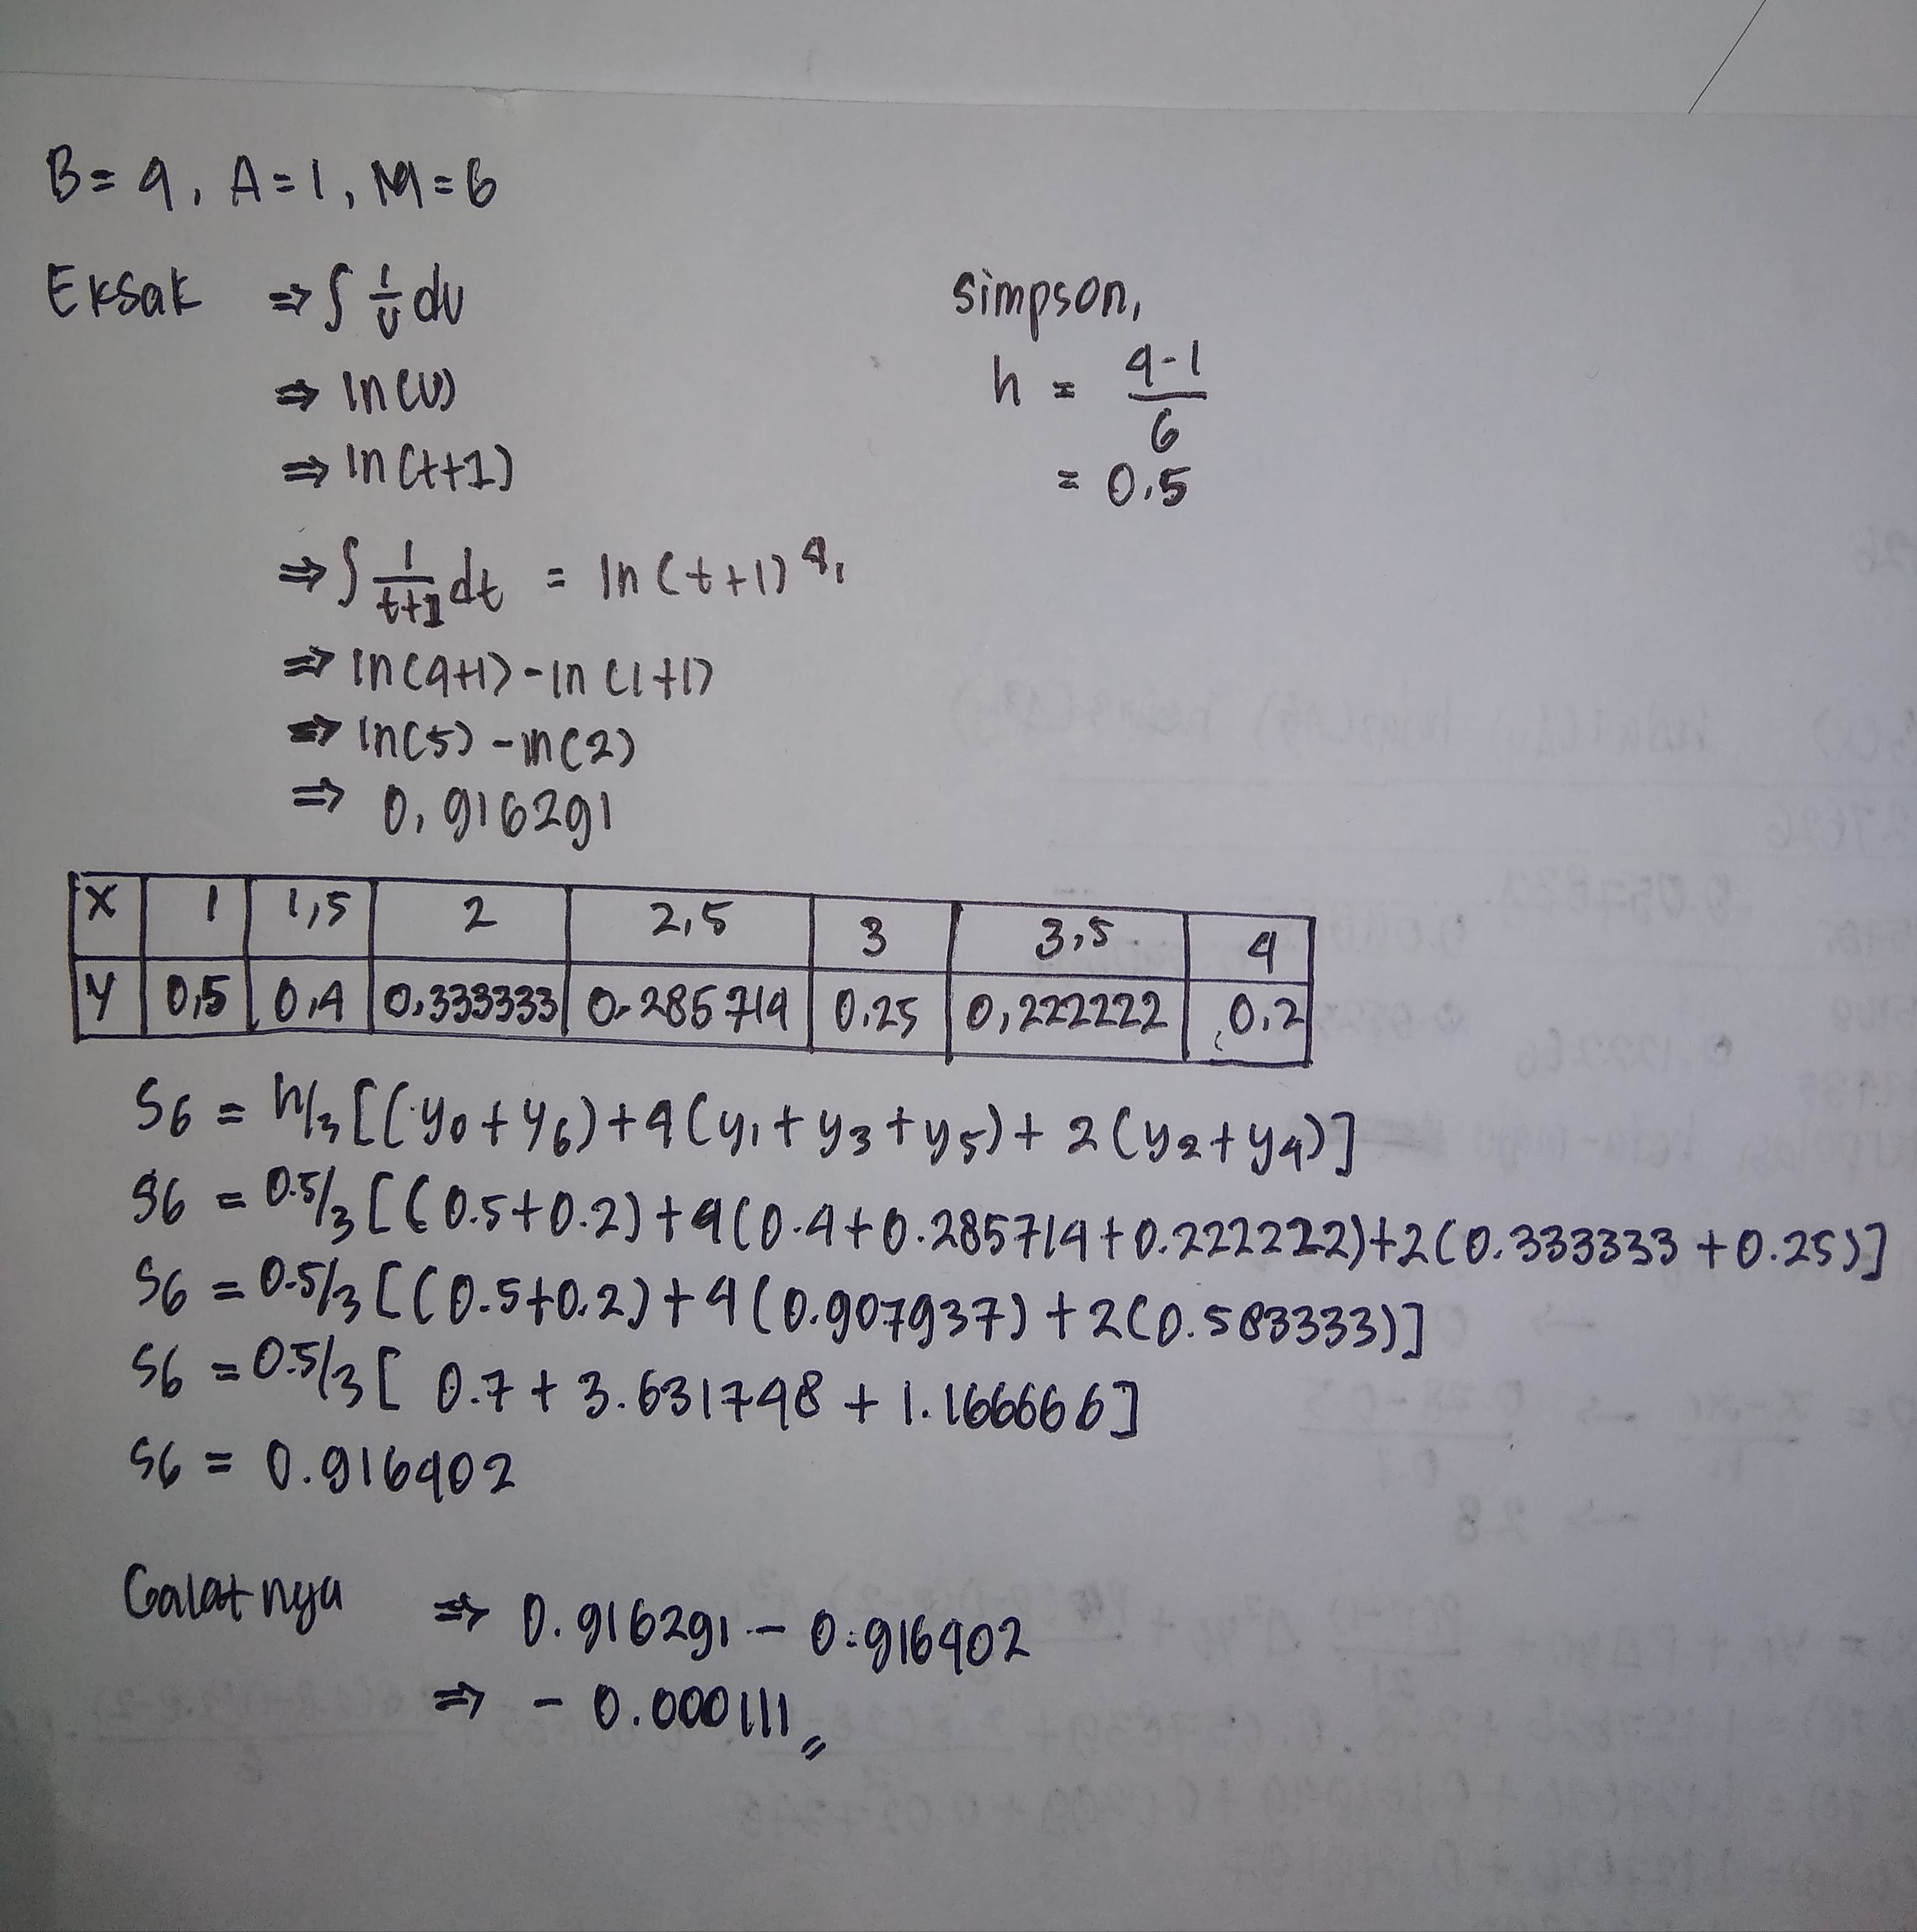 B = 4, A = 1, M = 6
Eksak ⇒ ∫ 1/u du
⇒ ln(u)
⇒ ln(t+1)
⇒ ∫ 1/(t+1) dt = ln(t+1) ⁴₁
⇒ ln(4+1) - ln(1+1)
⇒ ln(5) - ln(2)
⇒ 0,916291
Simpson,
h = (4-1)/6
= 0.5
X 1 1,5 2 2,5 3 3,5 4
Y 0,5 0,4 0,333333 0.285714 0.25 0,222222 0.2
S6 = h/3 [(y₀ + y₆) + 4(y₁ + y₃ + y₅) + 2(y₂ + y₄)]
S6 = 0.5/3 [(0.5+0.2) + 4(0.4+0.285714+0.222222)+2(0.333333+0.25)]
S6 = 0.5/3 [(0.5+0.2) + 4(0.907937) + 2(0.583333)]
S6 = 0.5/3 [ 0.7 + 3.631748 + 1.166666]
S6 = 0.916402
Galatnya ⇒ 0.916291 - 0.916402
⇒ - 0.000111